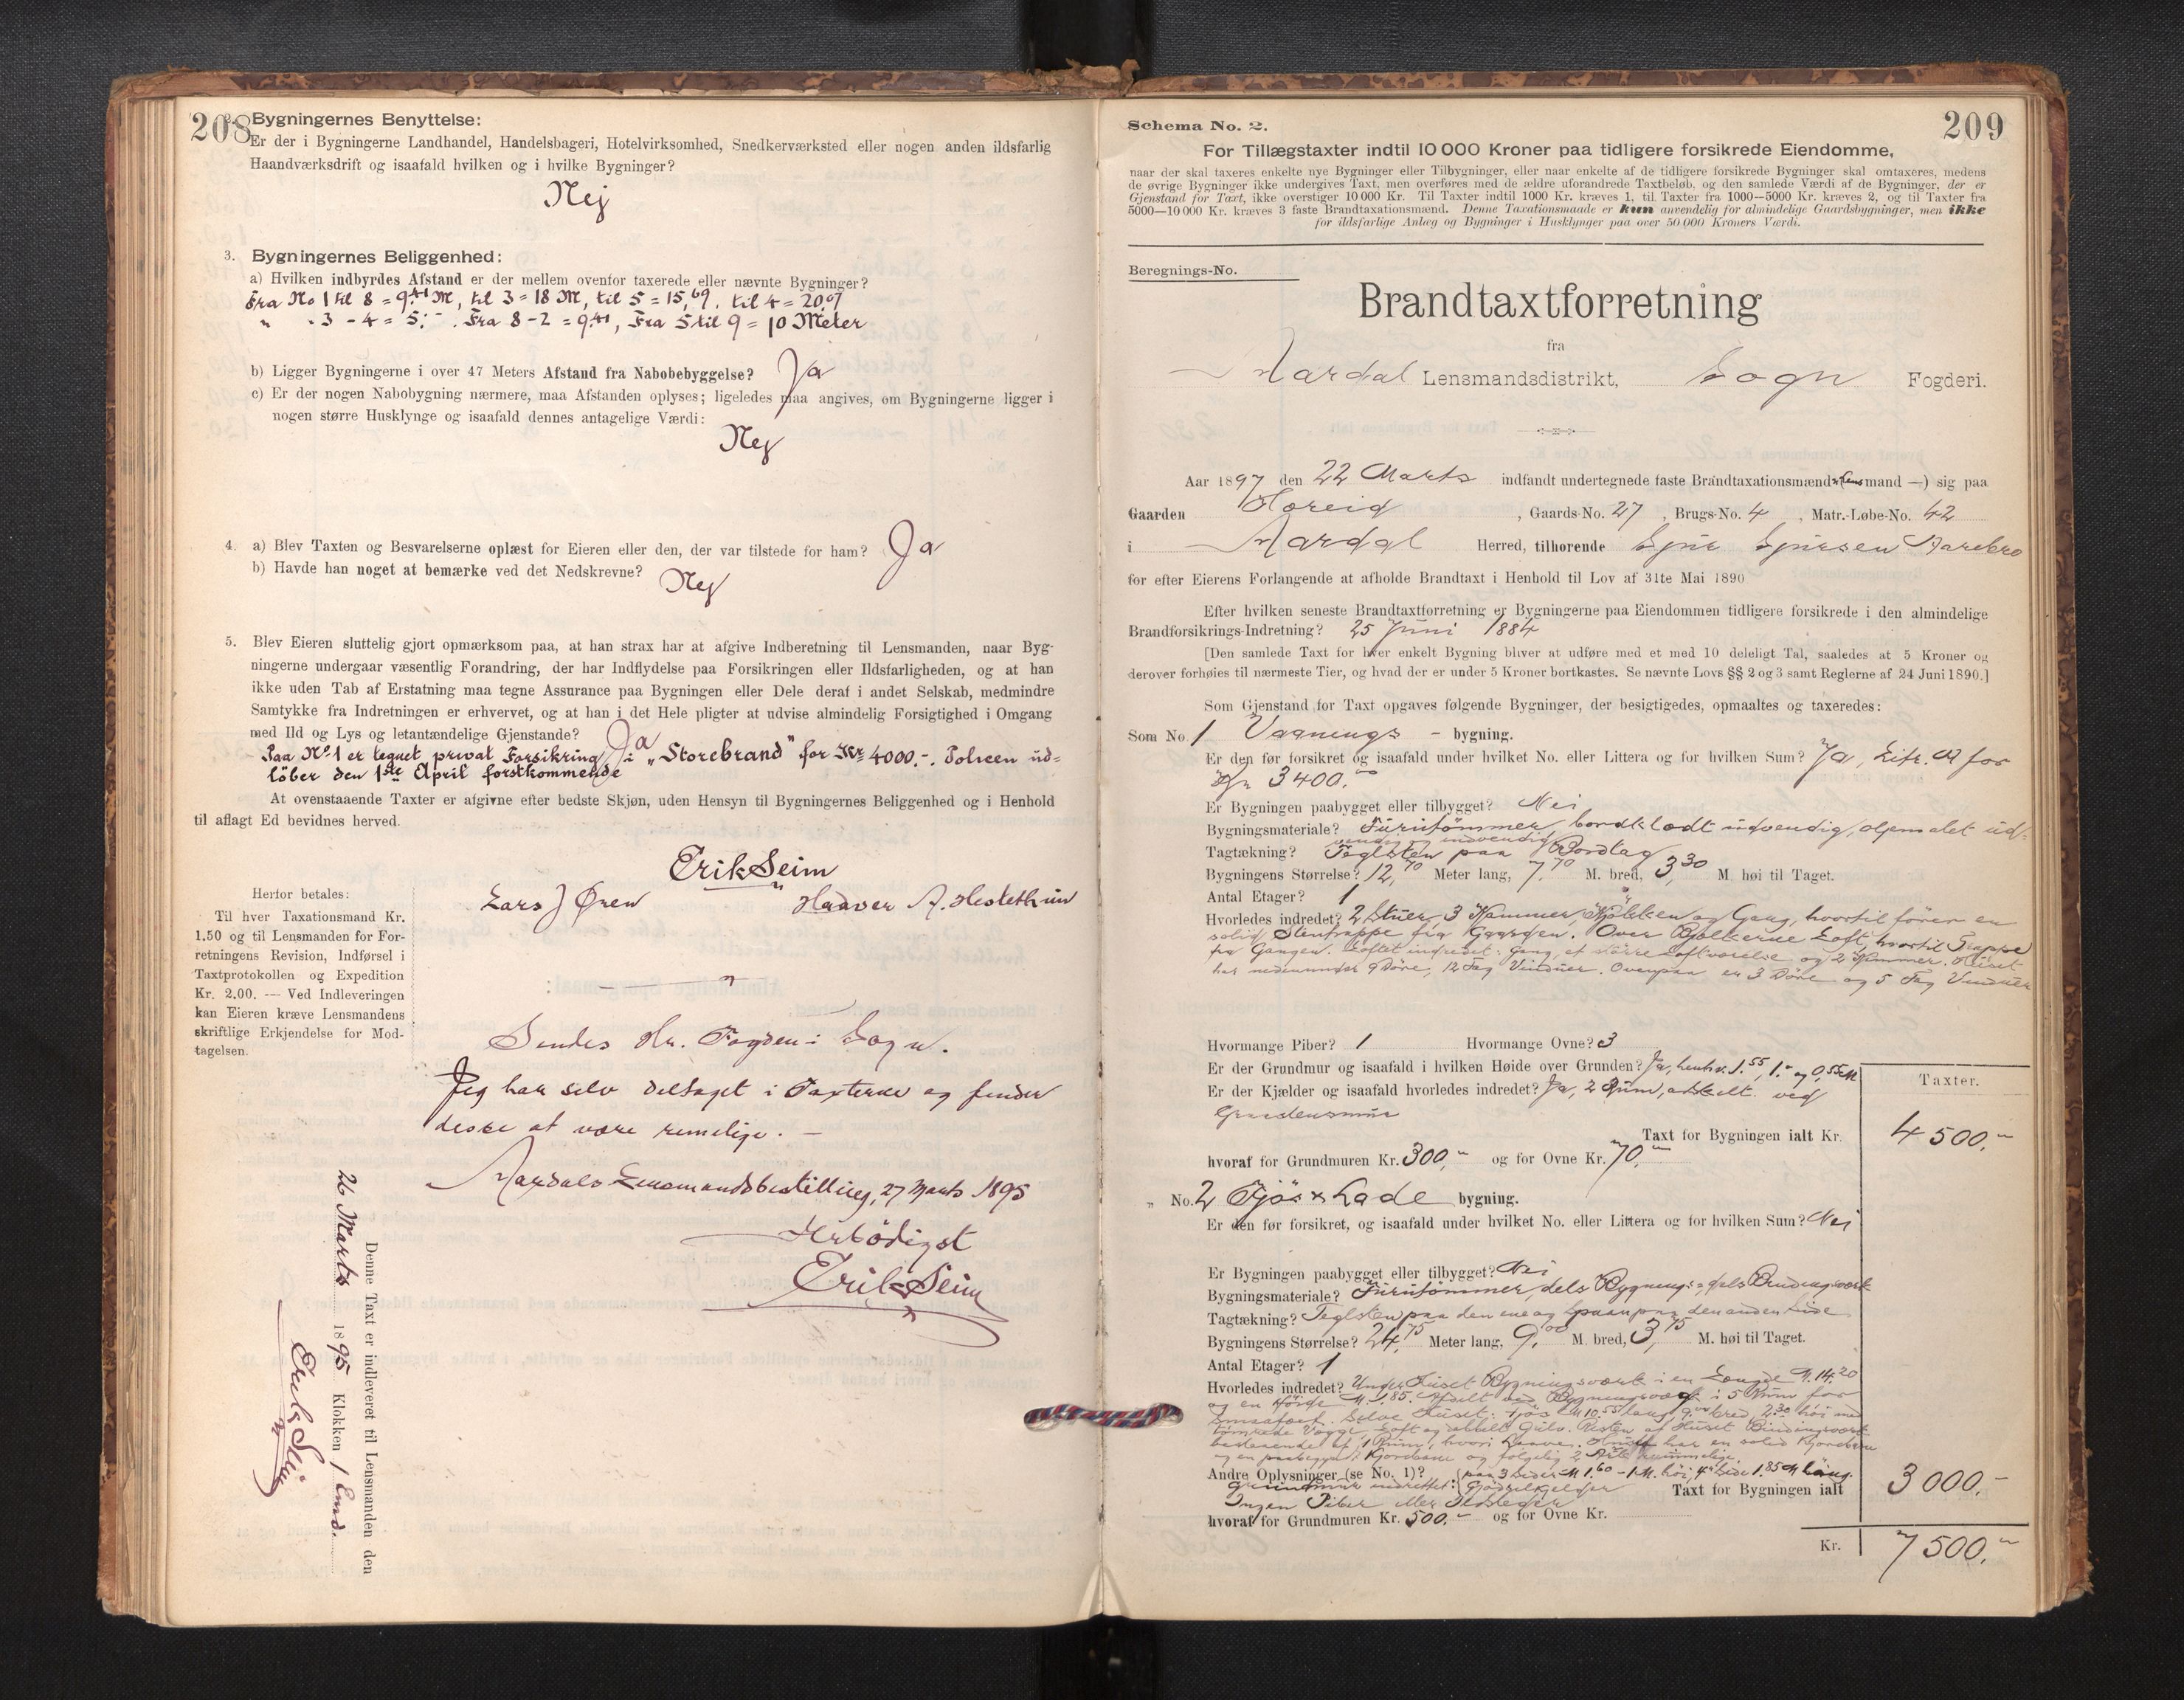 208
2. Bygningernes Benyttelse:
Er der i Bygningerne Landhandel, Handelsbageri, Hotelvirksomhed, Snedkerværksted eller nogen anden ildsfarlig
Haandværksdrift og isaafald hvilken og i hvilke Bygninger?
Nej
3. Bygningernes Beliggenhed:
a) Hvilken indbyrdes Afstand er der mellem ovenfor taxerede eller nævnte Bygninger?
Fra No 1 til 8 = 9.41 M, til 3 = 18 M, til 5 = 15,69, til 4 = 20,07
" - 3 - 4 = 5,- . Fra 8 - 2 = 9.41, Fra 5 til 9 = 10 Meter
b) Ligger Bygningerne i over 47 Meters Afstand fra Nabobebyggelse? Ja
c) Er der nogen Nabobygning nærmere, maa Afstanden oplyses; ligeledes maa angives, om Bygningerne ligger i
nogen større Husklynge og isaafald dennes antagelige Værdi:
Nej
4. a) Blev Taxten og Besvarelserne oplæst for Eieren eller den, der var tilstede for ham? Ja
b) Havde han noget at bemærke ved det Nedskrevne?
Nej
5. Blev Eieren sluttelig gjort opmærksom paa, at han strax har at afgive Indberetning til Lensmanden, naar Byg-
ningerne undergaar væsentlig Forandring, der har Indflydelse paa Forsikringen eller Ildsfarligheden, og at han
ikke uden Tab af Erstatning maa tegne Assurance paa Bygningen eller Dele deraf i andet Selskab, medmindre
Samtykke fra Indretningen er erhvervet, og at han i det Hele pligter at udvise almindelig Forsigtighed i Omgang
med Ild og Lys og letantændelige Gjenstande? Ja
Paa No 1 er tegnet privat Forsikring i "Storebrand" for Kr 4000.-. Polisen ud-
löber den 1ste April forstkommende
At ovenstaaende Taxter er afgivne efter bedste Skjøn, uden Hensyn til Bygningernes Beliggenhed og i Henhold
til aflagt Ed bevidnes herved.
Erik Seim
Lars J Øren Haaver A. Hestethun
Herfor betales:
Til hver Taxationsmand Kr.
1.50 og til Lensmanden for For-
retningens Revision, Indførsel i
Taxtprotokollen og Expedition
Kr. 2.00. — Ved Indleveringen
kan Eieren kræve Lensmandens
skriftlige Erkjendelse for Mod-
tagelsen.
Sendes Hr. Fogden i Sogn.
Jeg har selv deltaget i Taxterne og finder
disse at være rimelige. —
Aardals Lensmandsbestilling, 27 Marts 1895
Ærbödigst
Erik Seim
Denne Taxt er indleveret til Lensmanden den
26 Marts 1895 Klokken 1 Emd.
Erik Seim
209
Schema No. 2.
For Tillægstaxter indtil 10 000 Kroner paa tidligere forsikrede Eiendomme,
naar der skal taxeres enkelte nye Bygninger eller Tilbygninger, eller naar enkelte af de tidligere forsikrede Bygninger skal omtaxeres, medens
de øvrige Bygninger ikke undergives Taxt, men overføres med de ældre uforandrede Taxtbeløb, og den samlede Værdi af de Bygninger, der er
Gjenstand for Taxt, ikke overstiger 10 000 Kr. Til Taxter indtil 1000 Kr. kræves 1, til Taxter fra 1000—5000 Kr. kræves 2, og til Taxter fra
5000—10 000 Kr. kræves 3 faste Brandtaxationsmænd. Denne Taxationsmaade er kun anvendelig for almindelige Gaardsbygninger, men ikke
for ildsfarlige Anlæg og Bygninger i Husklynger paa over 50 000 Kroners Værdi.
Beregnings-No.
Brandtaxtforretning
fra
Aardal Lensmandsdistrikt, Sogn Fogderi.
Aar 1897 den 22 Marts indfandt undertegnede faste Brandtaxationsmænd (Lensmand —) sig paa
Gaarden Hæreid, Gaards-No. 27, Brugs-No. 4, Matr.-Løbe-No. 42
i Aardal Herred, tilhørende Sjur Sjursen Aarebro
for efter Eierens Forlangende at afholde Brandtaxt i Henhold til Lov af 31te Mai 1890
Efter hvilken seneste Brandtaxtforretning er Bygningerne paa Eiendommen tidligere forsikrede i den almindelige
Brandforsikrings-Indretning? 25 Juni 1884
[Den samlede Taxt for hver enkelt Bygning bliver at udføre med et med 10 deleligt Tal, saaledes at 5 Kroner og
derover forhøies til nærmeste Tier, og hvad der er under 5 Kroner bortkastes. Se nævnte Lovs §§ 2 og 3 samt Reglerne af 24 Juni 1890.]
Som Gjenstand for Taxt opgaves følgende Bygninger, der besigtigedes, opmaaltes og taxeredes:
Som No. 1 Vaanings - bygning.
Er den før forsikret og isaafald under hvilket No. eller Littera og for hvilken Sum? Ja, Litr. A for
Kr 3400.
Er Bygningen paabygget eller tilbygget? Nei
Bygningsmateriale? Furutömmer, bordklædt udvendig, oljemalet ud-
vendig og indvendig
Tagtækning? Teglsten paa Bordtag
Bygningens Størrelse? 12,70 Meter lang, 7,70 M. bred, 3,30 M. høi til Taget.
Antal Etager? 1
Hvorledes indredet? 2 Stuer, 3 Kammer, Kjökken og Gang, hvortil fører en
solid Stentrappe fra Gaarden. Over Bjelkerne Loft, hvortil Trappe
fra Gangen. Loftet indredet: Gang, et större Loftværelse og 2 Kammer. Huset
har nedenunder 9 Döre, 12 Fag Vinduer. Ovenpaa er 3 Döre og 5 Fag Vinduer
Hvormange Piber? 1 Hvormange Ovne? 3
Er der Grundmur og isaafald i hvilken Høide over Grunden? Ja, henhv. 1.55, 1.- og 0,55 M
Er der Kjælder og isaafald hvorledes indredet? Ja, 2 Rum, adskilt ved
Graastensmur
Taxter.
Taxt for Bygningen ialt Kr. 4500.-
hvoraf for Grundmuren Kr. 300,- og for Ovne Kr. 70.-
" No. 2 Fjös & Lade bygning.
Er den før forsikret, og isaafald under hvilket No. eller Littera og for hvilken Sum? Nei
Er Bygningen paabygget eller tilbygget? Nei
Bygningsmateriale? Furutömmer, dels Bygnings- dels Bindingsværk
Tagtækning? Teglsten paa den ene og Spaan paa den anden Side
Bygningens Størrelse? 24,75 Meter lang, 9,00 M. bred, 3,75 M. høi til Taget.
Antal Etager? 1
Hvorledes indredet? Under Huset Bygningsværk i en Længde M. 14.20
og en Höide M. 1.85. Afdelt med Bygningsværk i 5 Rum for
Smaafæet. Selve Huset: Fjös M 10.55 lang, 9.00 bred, 2.30 höi med
tömrede Vægge, Loft og dobbelt Gulv. Resten af Huset Bindingsværk
bestaaende af 1 Rum, hvori Laave. Huset har en solid Kjörebro
Andre Oplysninger (se No. 1)? paa 3 Sider M 1.60 - 1 M. höi, 4de Side 1.85 M
Grundmur indrettet: Gjödselkjelder
Ingen Piber eller Ildsteder
Taxt for Bygningen ialt 3000.-
hvoraf for Grundmuren Kr. 500.- og for Ovne Kr.
Kr. 7500.-